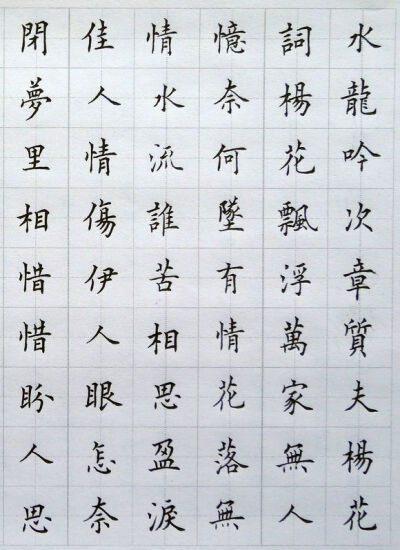 水龍吟次章質夫楊花
詞楊花飄浮萬家無人
憶奈何墜有情花落無
情水流誰苦相思盈淚
佳人情傷伊人眼怎奈
閉夢里相惜惜盼人思